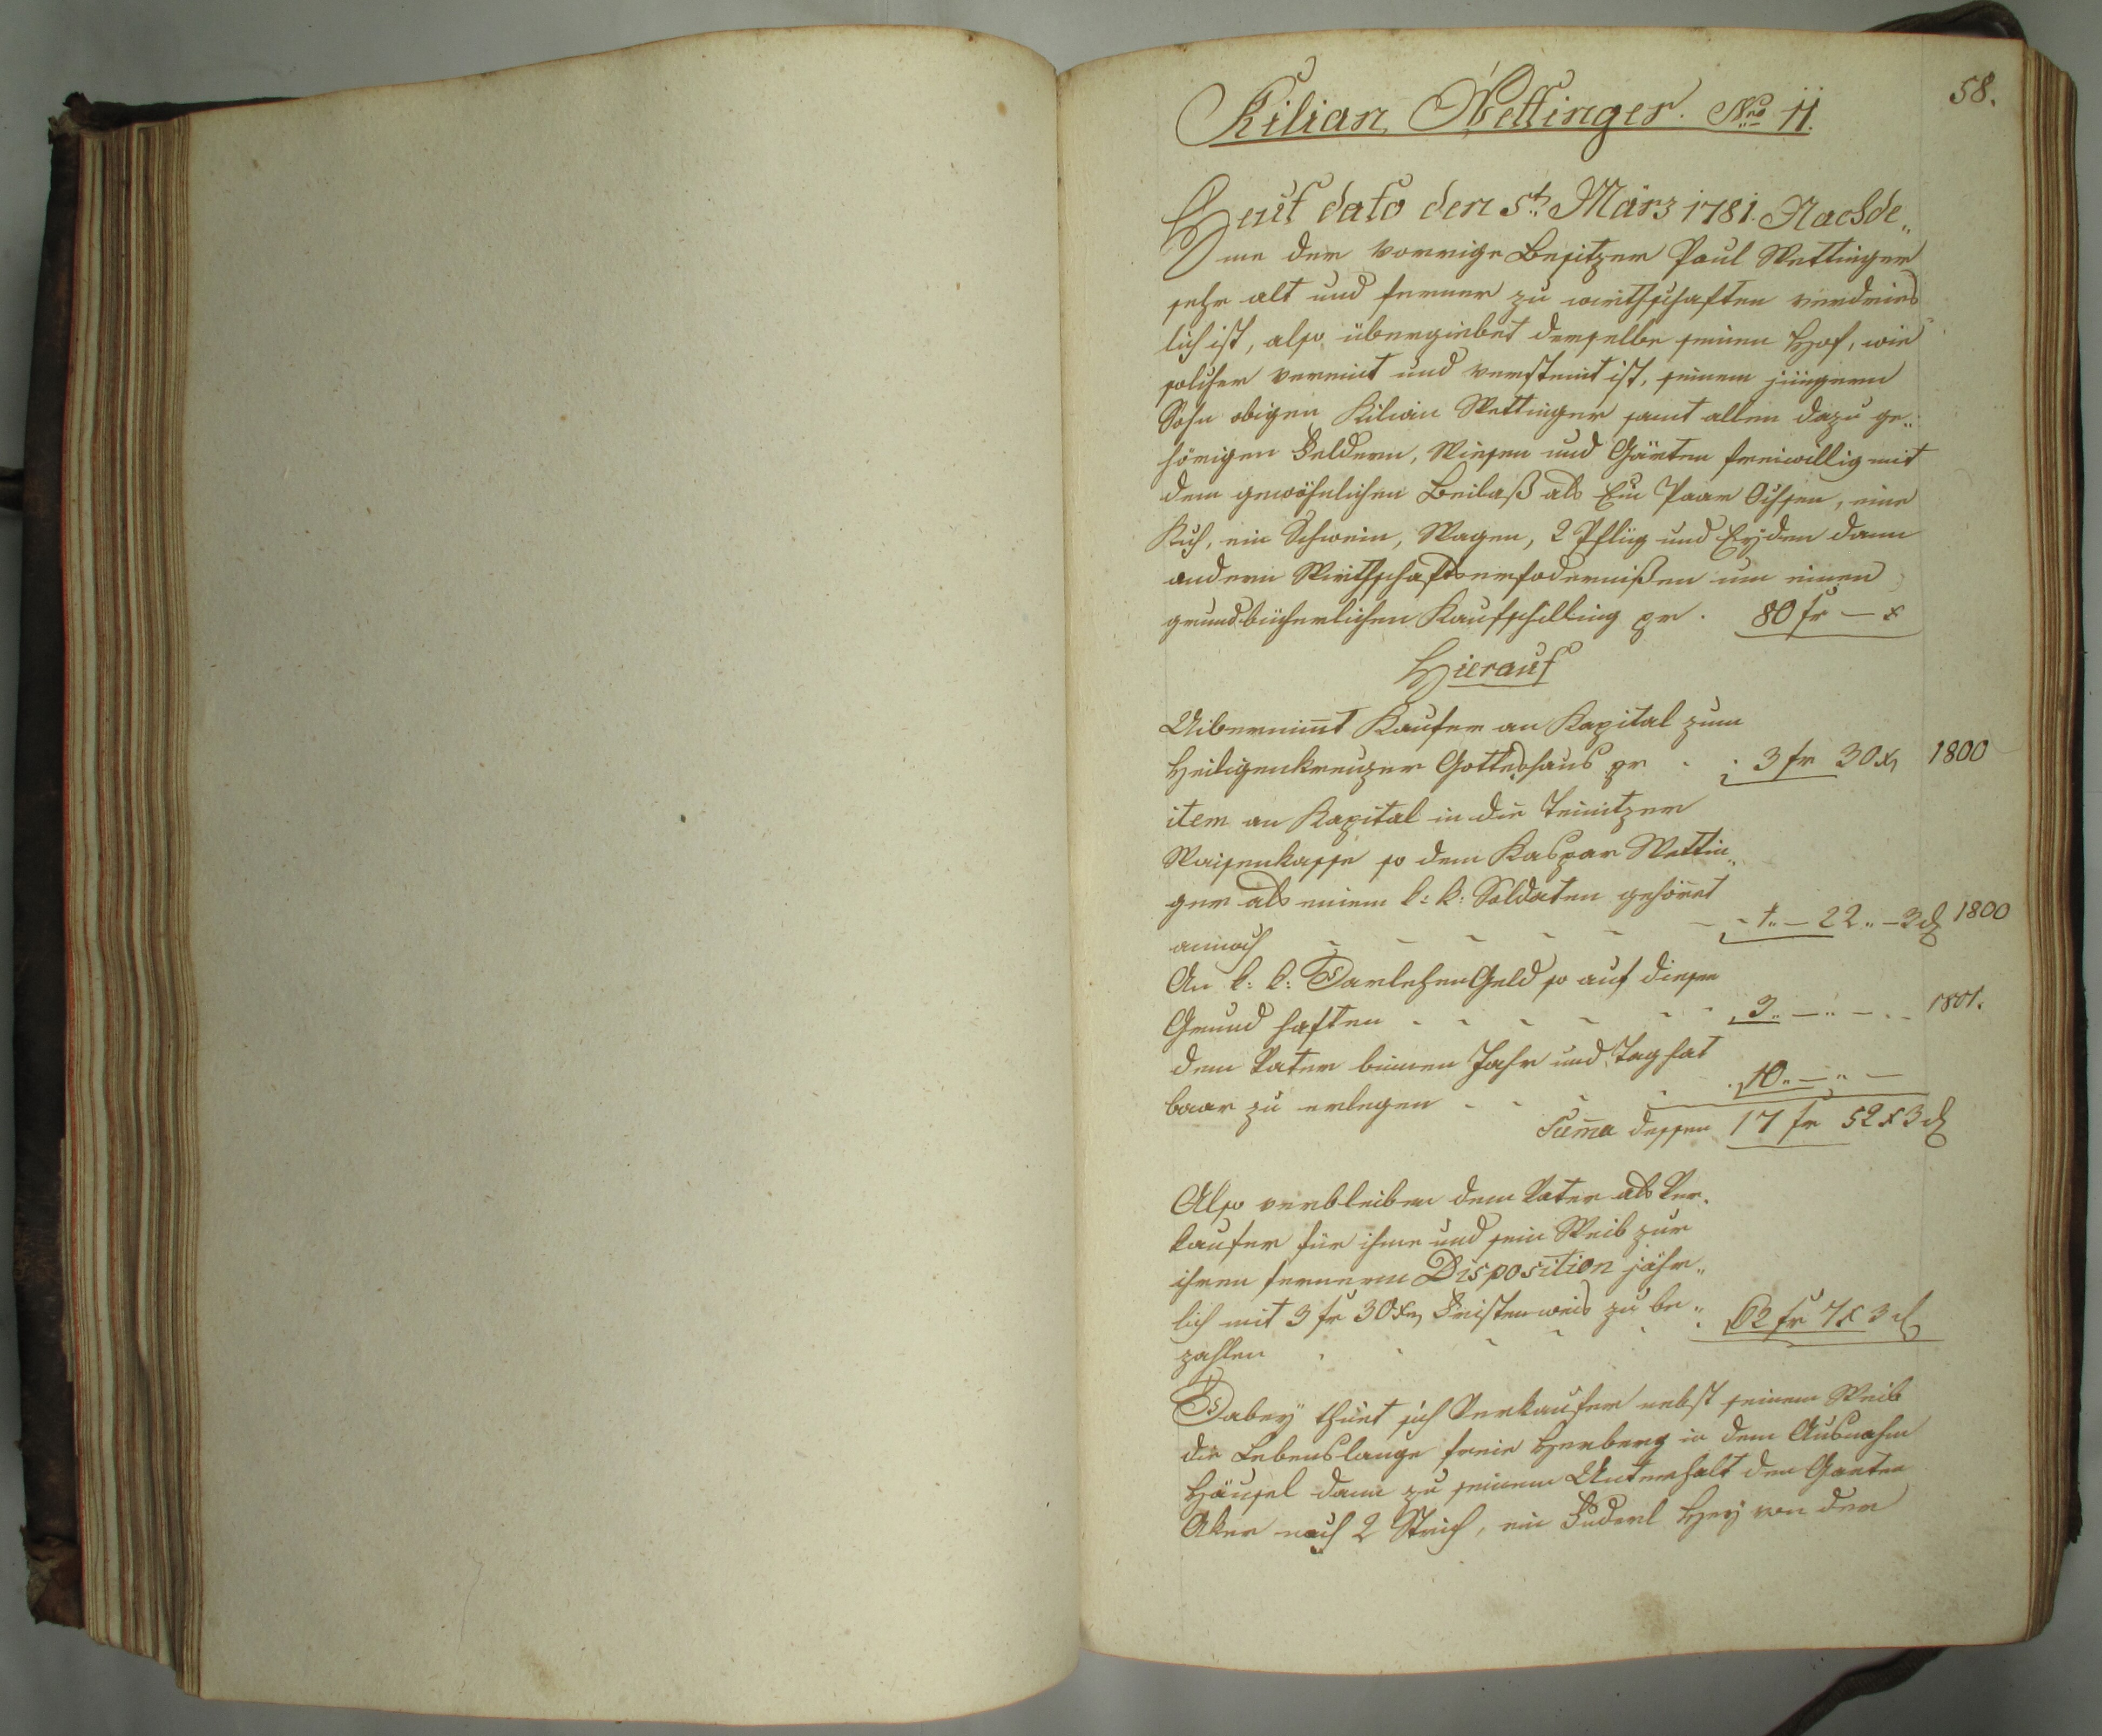 58.
Kilian Wettinger. Nro 11.
Heut dato den 5t. März 1781. Nachde„
me der vorrige Besitzer Paul Wettinger
sehr alt und ferner zu wirthschaften verdries„
lich ist, also übergiebet derselbe seinen Hof, wie
solcher vereint und versteint ist, seinem jüngern
Sohn obigen Kilian Wettinger samt allen dazu ge„
hörigen Feldern, Wiesen und Gärten freiwillig mit
dem gewöhnlichen Beilaß als Ein Paar Ochsen, eine
Kuh, ein Schwein, Wagen, 2 Pflüg und Eyden dann
andern Wirthschaftserfodernißen um einen
grundbücherlichen Kaufschilling pr. 80 fr — x
Hierauf
Uibernim̄t Kaufer an Kapital zum
Heiligenkreuzer Gotteshaus pr . . 3 fr 30 x, 1800
item an Kapital in die Teinitzer
Waisenkasse so dem Kaspar Wettin„
ger als einem k: k: Soldaten gehöret
annoch - - - - - - 1.. — 22.. — 3 d 1800
An k: k: Darlehen Geld so auf diesen
Grund haften - - - - - - 3.. — .. — .. 1801.
dem Vater binnen Jahr und Tag hat
baar zu erlegen - - - - 10.. — .. —
Sum̄a dessen 17 fr 52 x 3 d
Also verbleiben dem Vater als Ver„
kaufer für ihme und sein Weib zur
ihren fernern Disposition jähr„
lich mit 3 fr 30 x, Fristenweis zu be„
zahlen . . . . . 62 fr 7 x 3 d
Dabey thuet sich Verkaufer nebst seinem Weib
die Lebenslange freie Herberg in dem Ausnahm
Häusel dann zu seinem Unterhalt den Garten
Aker nach 2 Strich, ein Fuderl Hey von der